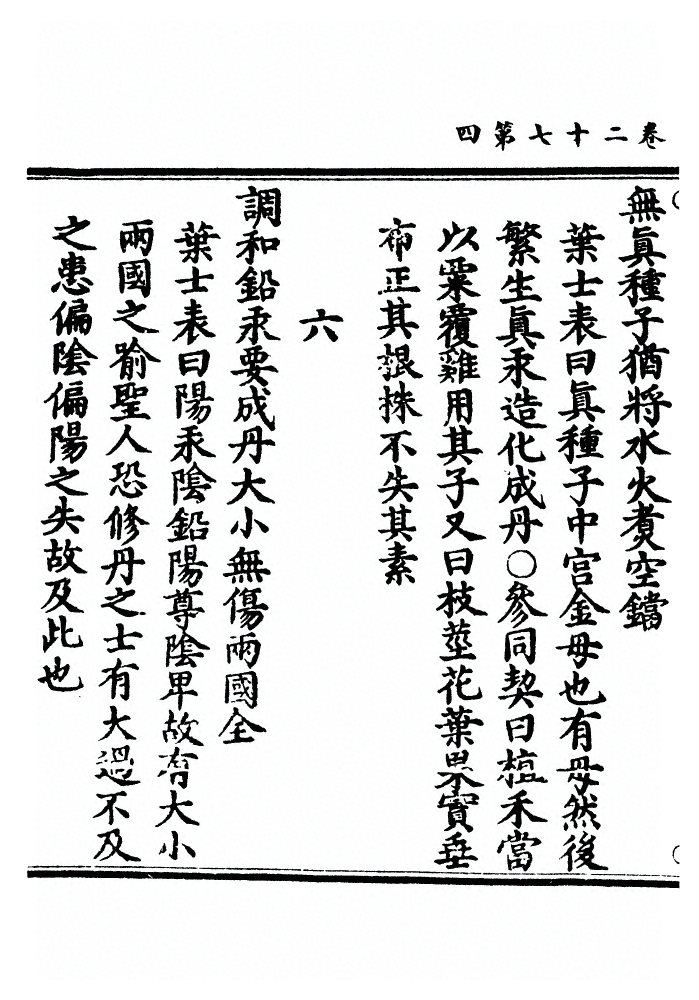 卷二十七第四
無眞種子猶將水火煑空鐺
葉士表曰眞種子中宮金母也有母然後
繁生眞汞造化成丹○參同契曰植禾當
以粟覆雞用其子又曰枝莖花葉果實垂
布正其根株不失其素
六
調和鉛汞要成丹大小無傷兩國全
葉士表曰陽汞陰鉛陽尊陰卑故有大小
兩國之喻聖人恐修丹之士有大過不及
之患偏陰偏陽之失故及此也